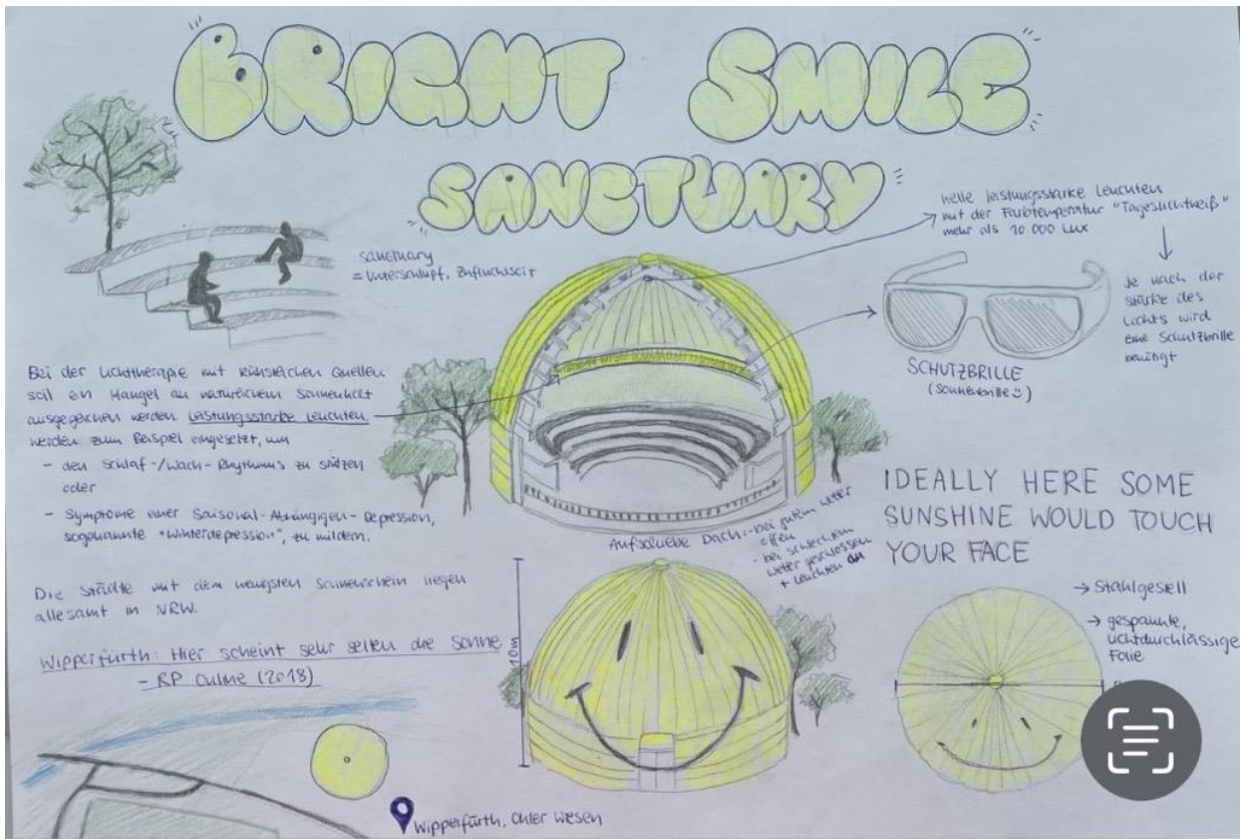 BRIGHT SMILE
SANCTUARY
sanctuary
= Unterschlupf, Zufluchtsort
Helle leistungsstarke Leuchten
mit der Farbtemperatur "Tageslichtweiß"
mehr als 10.000 Lux
Je nach der
stärke des
Lichts wird
eine Schutzbrille
benötigt
SCHUTZBRILLE
(Sonnenbrille
Bei der Lichttherapie mit künstlichen Quellen
soll ein Mangel an natürlichem Sonnenlicht
ausgeglichen werden. Leistungsstarke Leuchten
werden zum Beispiel eingesetzt, um
- den Schlaf-/Wach-Rhythmus zu stützen
oder
- Symptome einer Saisonal-Abhängigen-Depression,
sogenannte "Winterdepression", zu mildern.
Die Städte mit dem wenigsten Sonnenschein liegen
allesamt in NRW.
Wipperfürth: Hier scheint sehr selten die Sonne
- RP Online (2018)
Aufschiebe Dach: - bei gutem Wetter
offen
- bei schlechtem
Wetter geschlossen
+ Leuchten an
IDEALLY HERE SOME
SUNSHINE WOULD TOUCH
YOUR FACE
10m
→ Stahlgestell
→ gespannte,
lichtdurchlässige
Folie
Wipperfürth, Ohler Wiesen